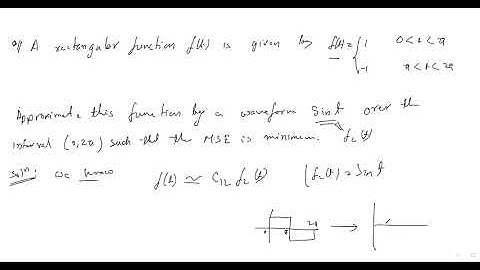 A rectangular function f(t) is given by f(t) = { 1 0<t<π
-1 π<t<2π
Approximate this function by a waveform Sint over the
interval (0,2π) such tht the MSE is minimum. f₂(t)
Solⁿ: we know f(t) ≃ C₁₂ f₂(t) (f₂(t) = Sint
2π